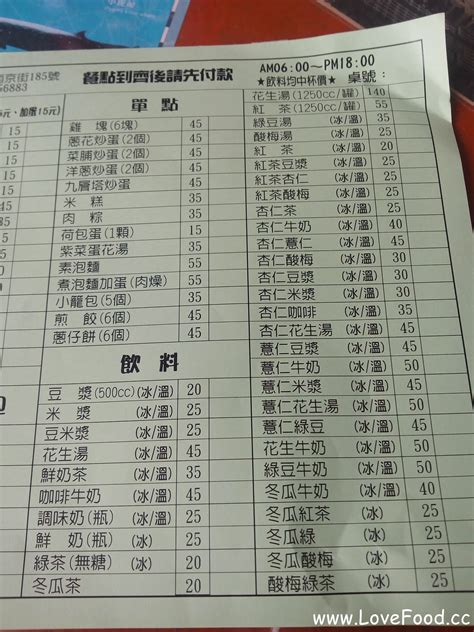 南京街185號
56883
餐點到齊後請先付款
AM06:00~PM18:00
★飲料均中杯價★ 桌號:
元、加起15元)
15
15
15
35
35
35
單點
雞 塊(6塊) 45
蔥花炒蛋(2個) 45
菜脯炒蛋(2個) 45
洋蔥炒蛋(2個) 45
九層塔炒蛋 45
米 糕 35
肉 粽 35
荷包蛋(1顆) 15
紫菜蛋花湯 35
素泡麵 55
煮泡麵加蛋(肉燥) 55
小籠包(5個) 35
煎 餃(6個) 45
蔥仔餅(6個) 45
飲料
豆 漿(500cc)(冰/溫) 20
米 漿 (冰/溫) 25
豆米漿 (冰/溫) 25
花生湯 (冰/溫) 45
鮮奶茶 (冰/溫) 35
咖啡牛奶 (冰/溫) 45
調味奶(瓶) (冰/溫) 25
鮮 奶(瓶) (冰) 25
綠茶(無糖) (冰) 20
冬瓜茶 20
花生湯(1250cc/罐) 140
紅 茶(1250cc/罐) 55
綠豆湯 (冰/溫) 35
酸梅湯 (冰/溫) 25
紅 茶 (冰/溫) 20
紅茶豆漿 (冰/溫) 25
紅茶杏仁 (冰/溫) 25
紅茶酸梅 (冰/溫) 25
杏仁茶 (冰/溫) 25
杏仁牛奶 (冰/溫) 40
杏仁薏仁 (冰/溫) 45
杏仁酸梅 (冰/溫) 30
杏仁豆漿 (冰/溫) 30
杏仁米漿 (冰/溫) 30
杏仁咖啡 (冰/溫) 35
杏仁花生湯 (冰/溫) 45
薏仁豆漿 (冰/溫) 45
薏仁牛奶 (冰/溫) 50
薏仁米漿 (冰/溫) 45
薏仁花生湯 (冰/溫) 50
薏仁綠豆 (冰/溫) 45
花生牛奶 (冰/溫) 50
綠豆牛奶 (冰/溫) 50
冬瓜牛奶 (冰/溫) 40
冬瓜紅茶 (冰) 25
冬瓜綠茶 (冰) 25
冬瓜酸梅 (冰) 25
酸梅綠茶 (冰) 25
www.LoveFood.cc